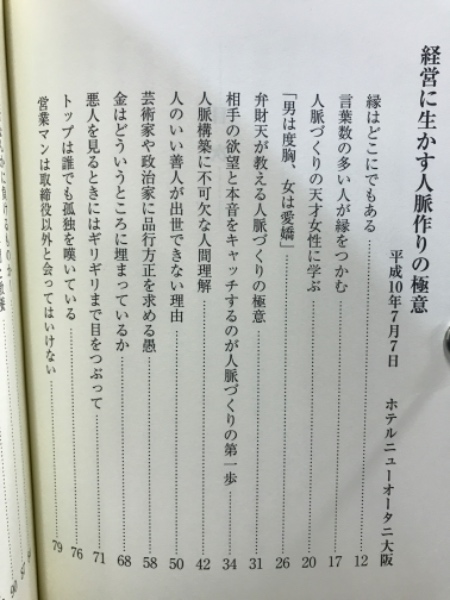 経営に生かす人脈作りの極意
平成10年7月7日　ホテルニューオータニ大阪
縁はどこにでもある……12
言葉数の多い人が縁をつかむ……17
人脈づくりの天才女性に学ぶ……20
「男は度胸、女は愛嬌」……26
弁財天が教える人脈づくりの極意……31
相手の欲望と本音をキャッチするのが人脈づくりの第一歩……34
人脈構築に不可欠な人間理解……42
人のいい善人が出世できない理由……50
芸術家や政治家に品行方正を求める愚……58
金はどういうところに埋まっているか……68
悪人を見るときにはギリギリまで目をつぶって……71
トップは誰でも孤独を嘆いている……76
営業マンは取締役以外と会ってはいけない……79
90